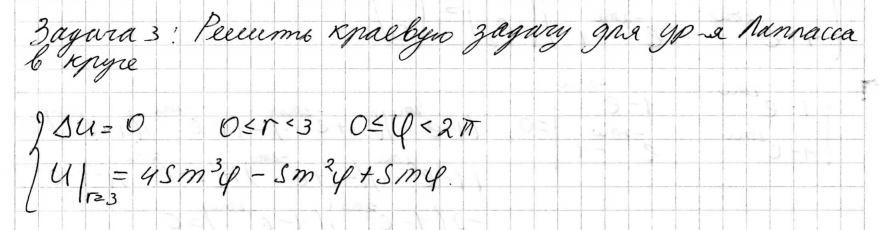 Задача 3: Решить краевую задачу для ур-я Лапласса
в круге
Δu = 0 0≤r<3 0≤φ<2π
u|r=3 = 4sin³φ - sin²φ + sinφ.